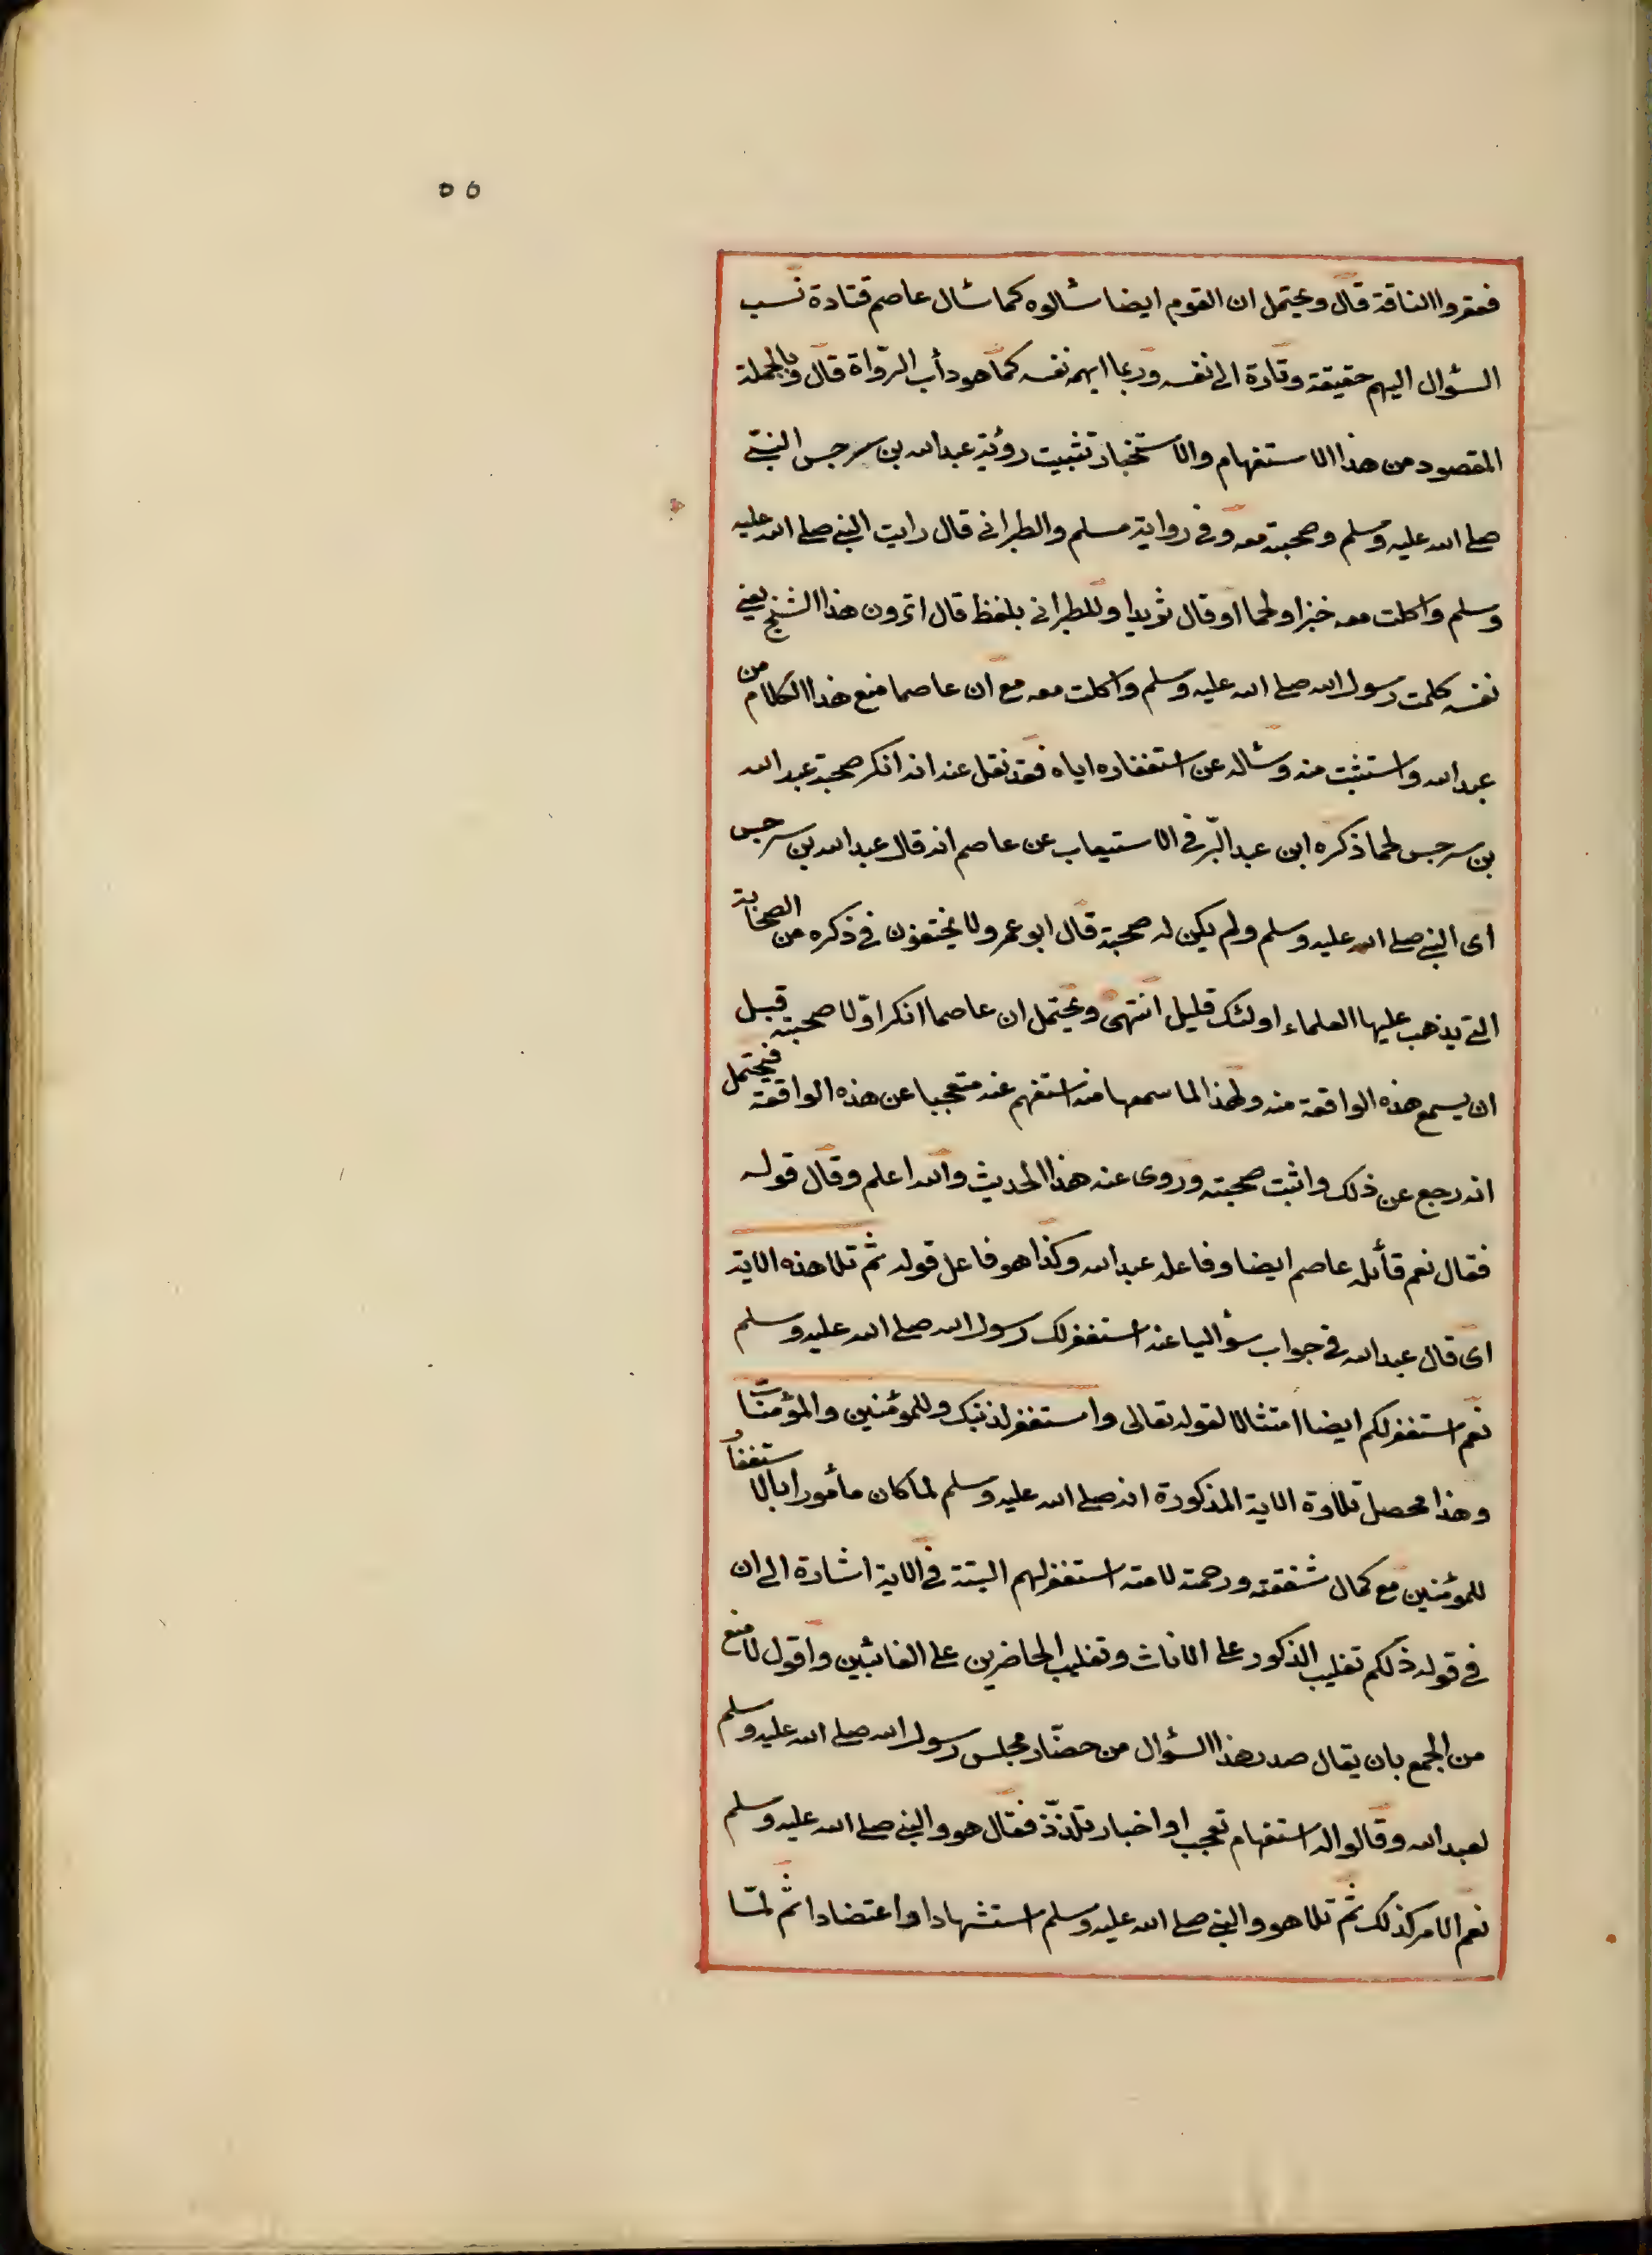 ٥٥
فعقروا الناقة قال ويحتمل ان القوم ايضا سألوه كما سأل عاصم فتارة نسب
السؤال اليهم حقيقة وتارة الى نفسه وربما ابهم نفسه كما هو دأب الرّواة قال وبالجملة
المقصود من هذا الاستفهام والاستخبار تثبيت رؤية عبد الله بن سرجس النبيّ
صلى الله عليه وسلم وصحبته معه وفى رواية مسلم والطبرانى قال رايت النبى صلى الله عليه
وسلم واكلت معه خبزا ولحما او قال ثريدا وللطبرانى بلفظ قال اترون هذا الشيخ يعنى
نفسه كلمت رسول الله صلى الله عليه وسلم واكلت معه مع ان عاصما منع هذا الكلام من
عبد الله واستثبت منه وسأله عن استغفاره اياه فقد نقل عنه انه انكر صحبة عبد الله
بن سرجس لما ذكره ابن عبد البّر فى الاستيعاب عن عاصم انه قال عبد الله بن سرجس
اى النبى صلى الله عليه وسلم ولم يكن له صحبة قال ابو عمر ولا يختفون فى ذكره من الصحابة
التى يذهب عليها العلماء اولئك قليل انتهى ويحتمل ان عاصما انكر اوّلا صحبته قبل
ان يسمع هذه الواقعة منه ولهذا لما سمعها منه استفهم عنه متعجبا عن هذه الواقعة فيحتمل
انه رجع عن ذلك واثبت صحبته وروى عنه هذا الحديث والله اعلم وقال قوله
فقال نعم قائله عاصم ايضا وفاعله عبد الله وكذا هو فاعل قوله ثم تلا هذه الاية
اى قال عبد الله فى جواب سؤالنا عنه استغفر لك رسول الله صلى الله عليه وسلم
نعم استغفر لكم ايضا امتثالا لقوله تعالى واستغفر لذنبك وللمؤمنين والمؤمنات
وهذا محصل تلاوة الاية المذكورة انه صلى الله عليه وسلم لما كان مأمورا بالاستغفار
للمؤمنين مع كمال شفقته ورحمته لامته استغفر لهم البتة فى الاية اشارة الى ان
فى قوله ذلكم تغليب الذكور على الاناث وتغليب الحاضرين على الغائبين واقول لا منع
من الجمع بان يقال صدر هذا السؤال من حضّار مجلس رسول الله صلى الله عليه وسلم
لعبد الله وقالوا له استفهام تعجب او اخبار تلذّذ فقال هو والنبى صلى الله عليه وسلم
نعم الامر كذلك ثم تلا هو والنبى صلى الله عليه وسلم استشهادا واعتضادا ثم لمّا